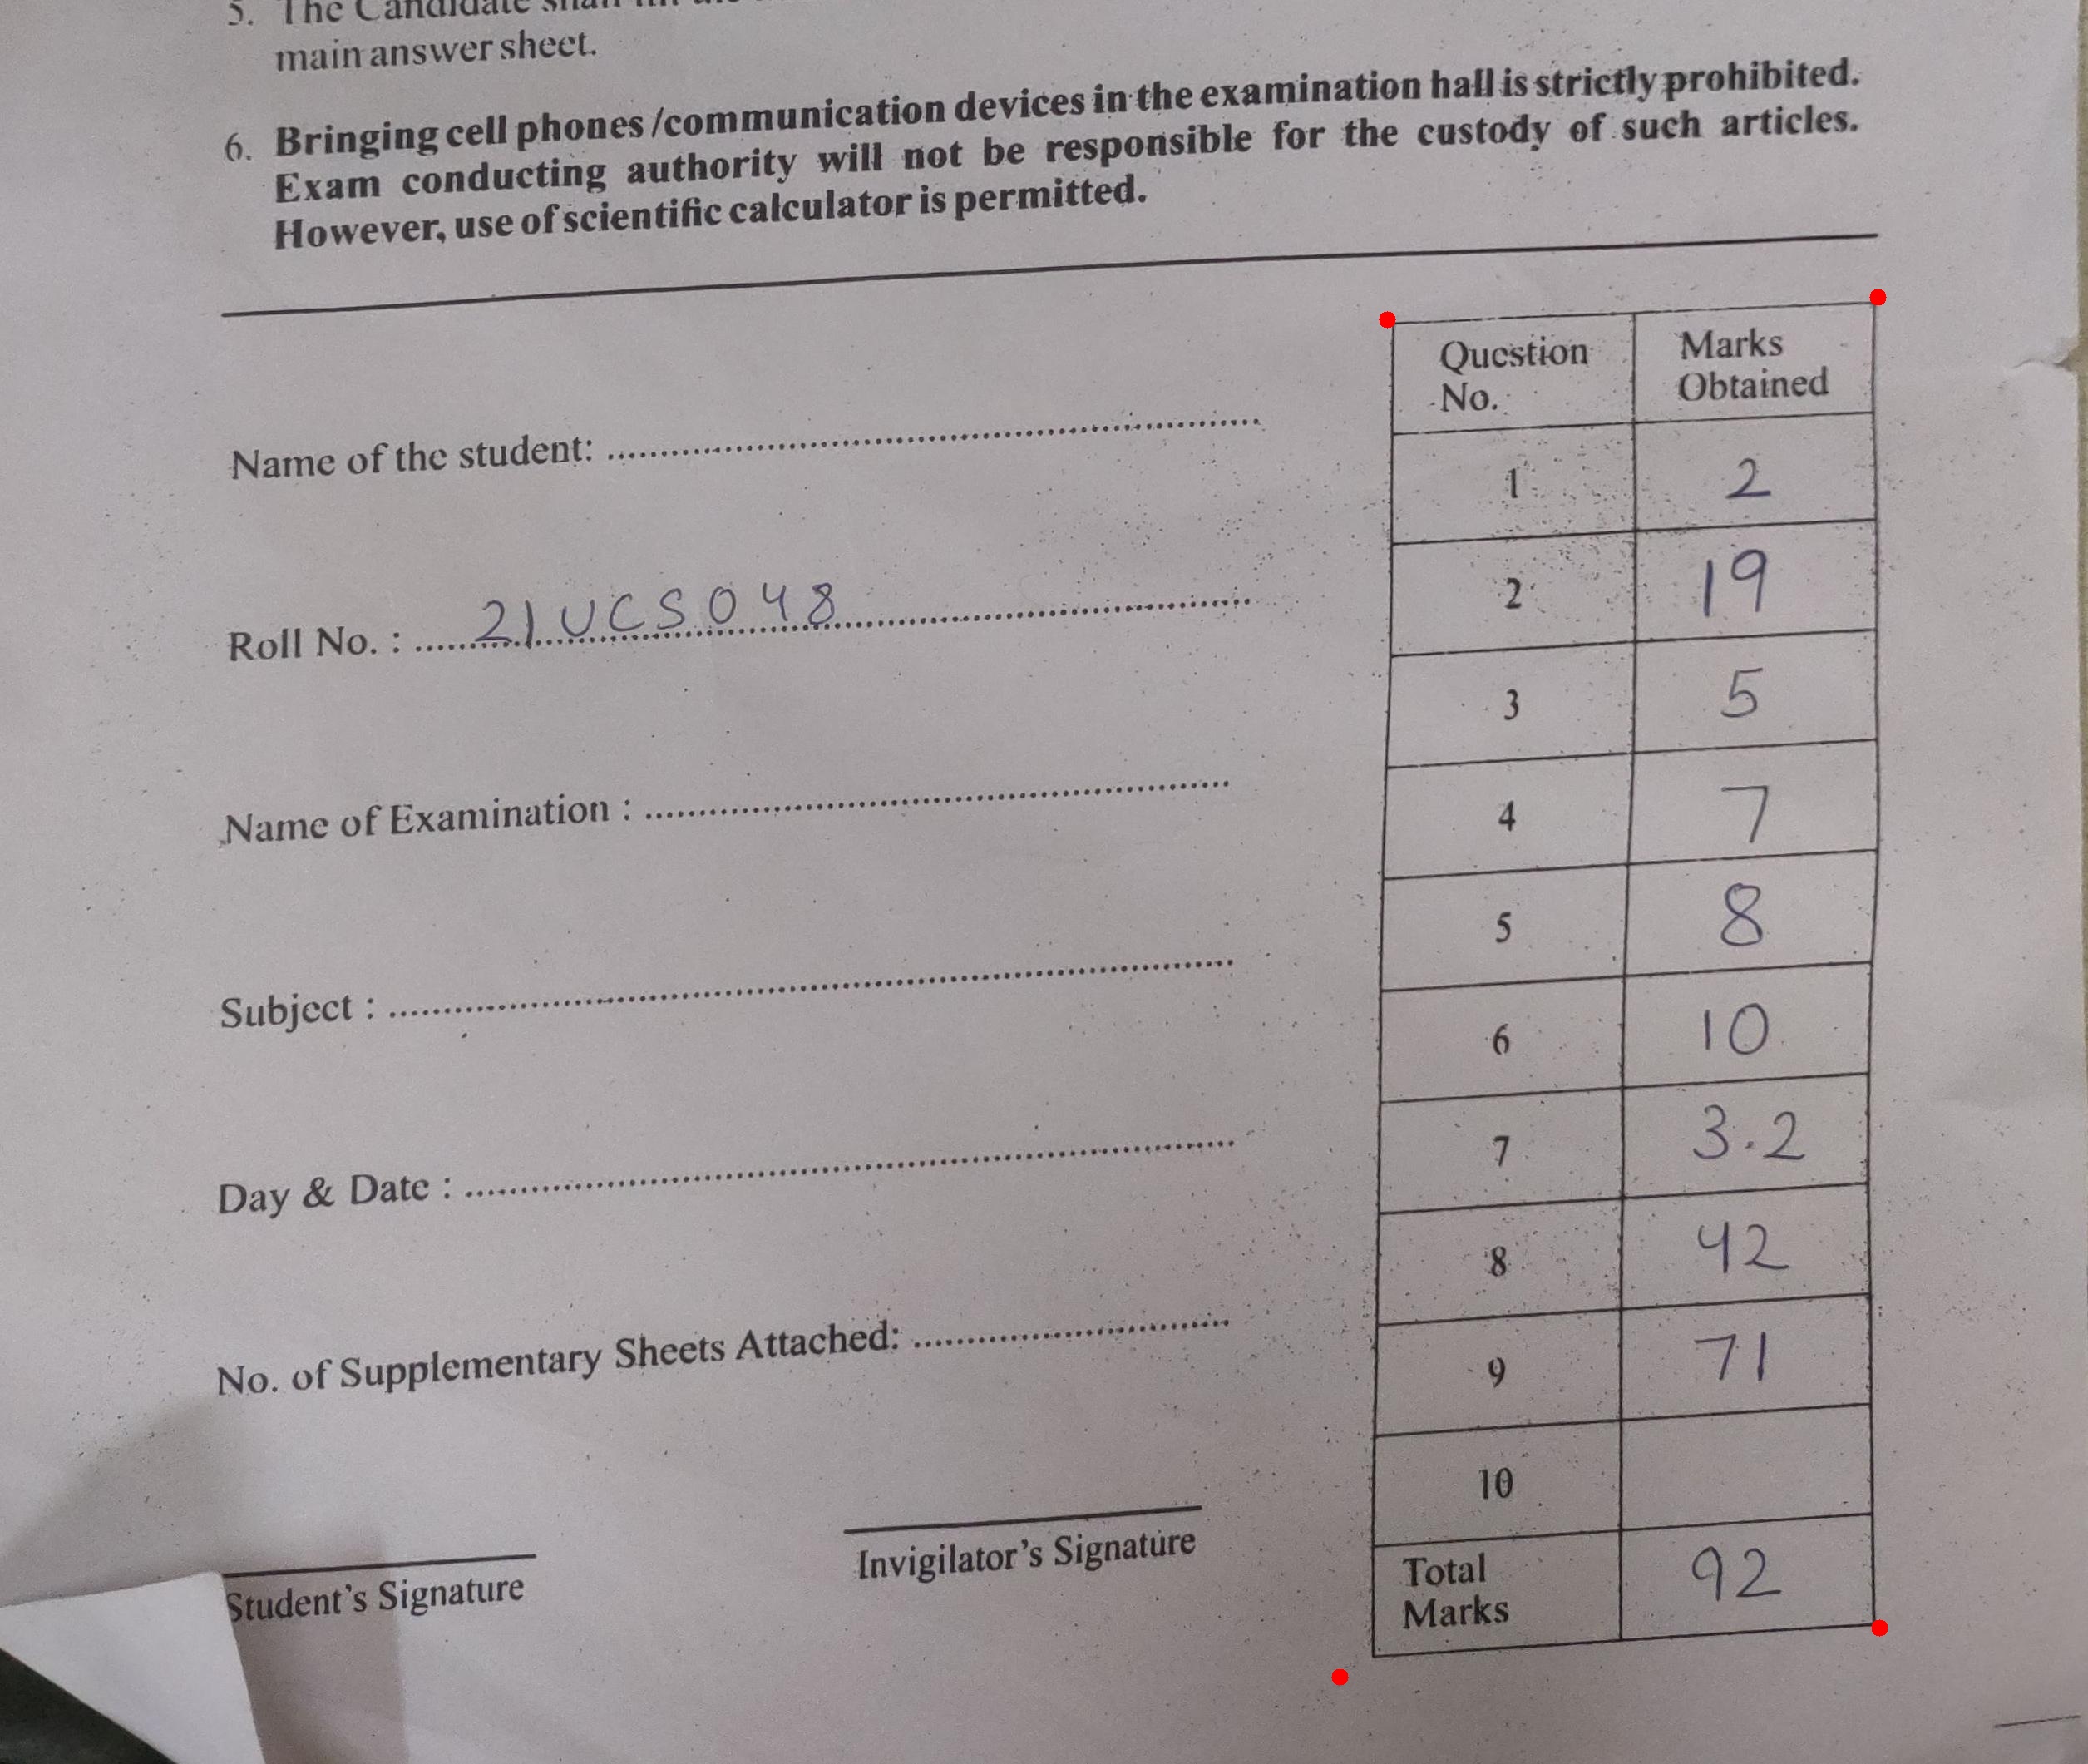 5. The Candidate shall
main answer sheet.
6. Bringing cell phones /communication devices in the examination hall is strictly prohibited.
Exam conducting authority will not be responsible for the custody of such articles.
However, use of scientific calculator is permitted.
Name of the student: ..........
Roll No. : 21UCS048
Name of Examination : ..........
Subject : ..........
Day & Date : ..........
No. of Supplementary Sheets Attached: ..........
Student's Signature
Invigilator's Signature
Question No. Marks Obtained
1 2
2 19
3 5
4 7
5 8
6 10
7 3.2
8 42
9 71
10
Total Marks 92